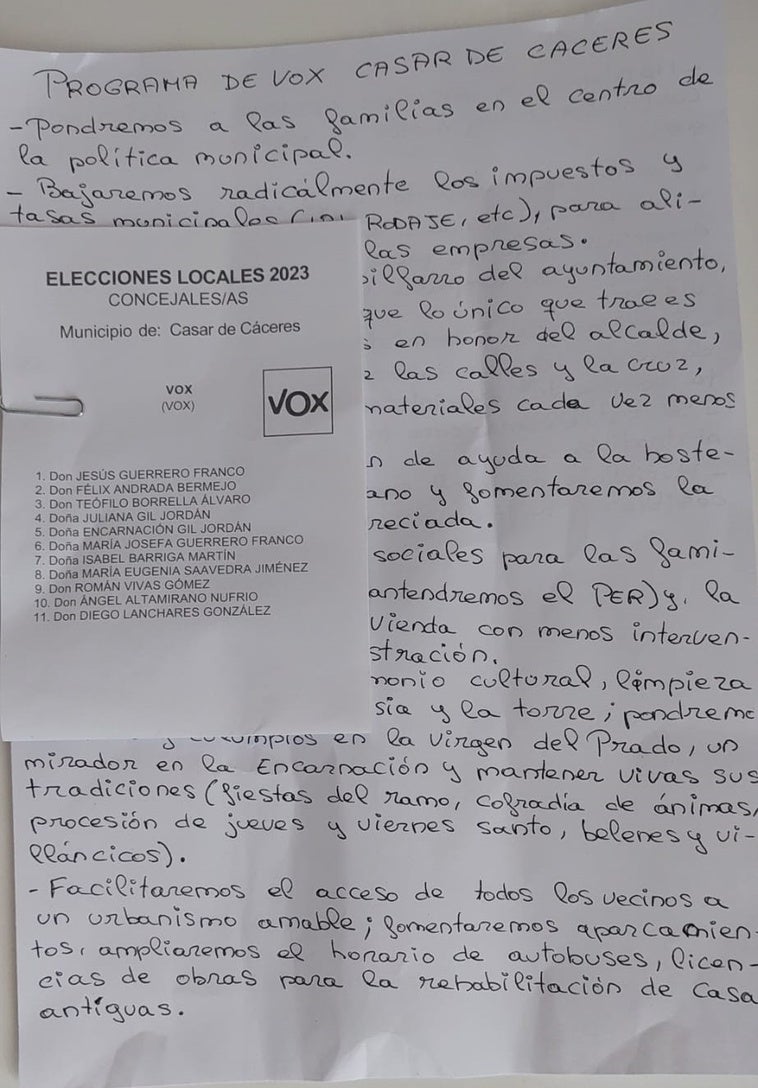 PROGRAMA DE VOX CASAR DE CACERES
- Pondremos a las familias en el centro de
la política municipal.
- Bajaremos radicálmente los impuestos y
tasas municipales RODAJE, etc), para ali-
las empresas.
del ayuntamiento,
que lo único que trae es
en honor del alcalde,
las calles y la cruz,
materiales cada vez menos
de ayuda a la hoste-
ano y fomentaremos la
reciada.
sociales para las fami-
antendremos el PER) y, la
vienda con menos interven-
stración.
monio cultural, limpieza
sia y la torre; pondremo
en la Virgen del Prado, un
mirador en la Encarnación y mantener vivas sus
tradiciones (fiestas del ramo, cofradía de ánimas,
procesión de jueves y viernes santo, belenes y vi-
lláncicos).
- Facilitaremos el acceso de todos los vecinos a
un urbanismo amable; fomentaremos aparcamien-
tos, ampliaremos el horario de autobuses, licen-
cias de obras para la rehabilitación de casa
antíguas.
ELECCIONES LOCALES 2023
CONCEJALES/AS
Municipio de: Casar de Cáceres
VOX
(VOX)
VOX
1. Don JESÚS GUERRERO FRANCO
2. Don FÉLIX ANDRADA BERMEJO
3. Don TEÓFILO BORRELLA ÁLVARO
4. Doña JULIANA GIL JORDÁN
5. Doña ENCARNACIÓN GIL JORDÁN
6. Doña MARÍA JOSEFA GUERRERO FRANCO
7. Doña ISABEL BARRIGA MARTÍN
8. Doña MARÍA EUGENIA SAAVEDRA JIMÉNEZ
9. Don ROMÁN VIVAS GÓMEZ
10. Don ÁNGEL ALTAMIRANO NUFRIO
11. Don DIEGO LANCHARES GONZÁLEZ